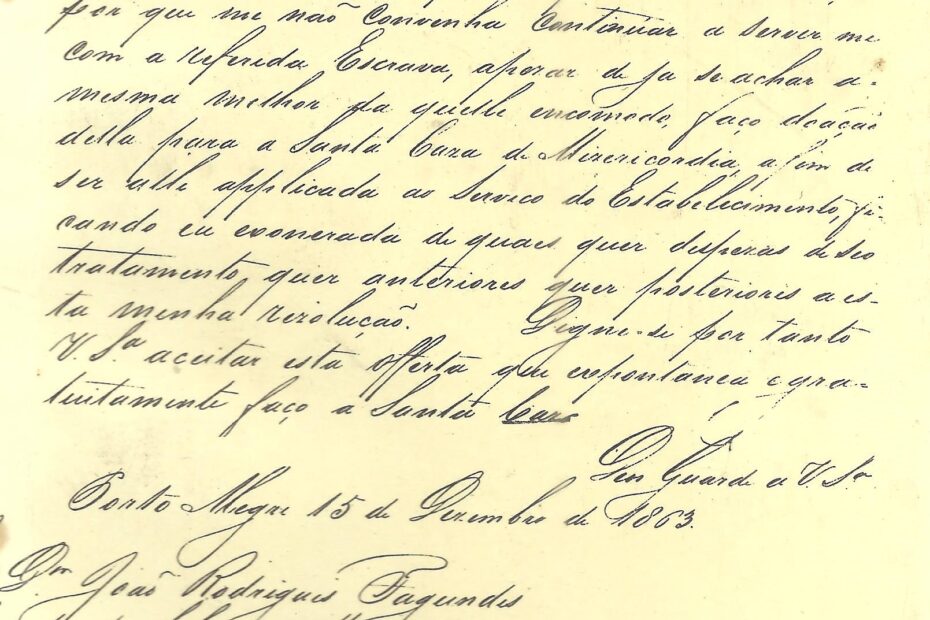 por que me não convenha continuar a servir me
com a referida Escrava, apezar de ja se achar a-
mesma melhor da quelle encomodo, faço doação
della para a Santa Caza de Mizericordia, a fim de
ser alle applicada ao Serviço do Estabelecimento, fi-
cando eu exonerada de quaes quer despezas de seo
tratamento, quer anteriores quer posteriores a es-
ta minha rezolução. Digne-se por tanto
V. Sª aceitar esta offerta que espontanea e gra-
tuitamente faço a Santa Caza
Deos Guarde a V. Sª
Porto Alegre 15 de Dezembro de 1863.
João Rodrigues Fagundes